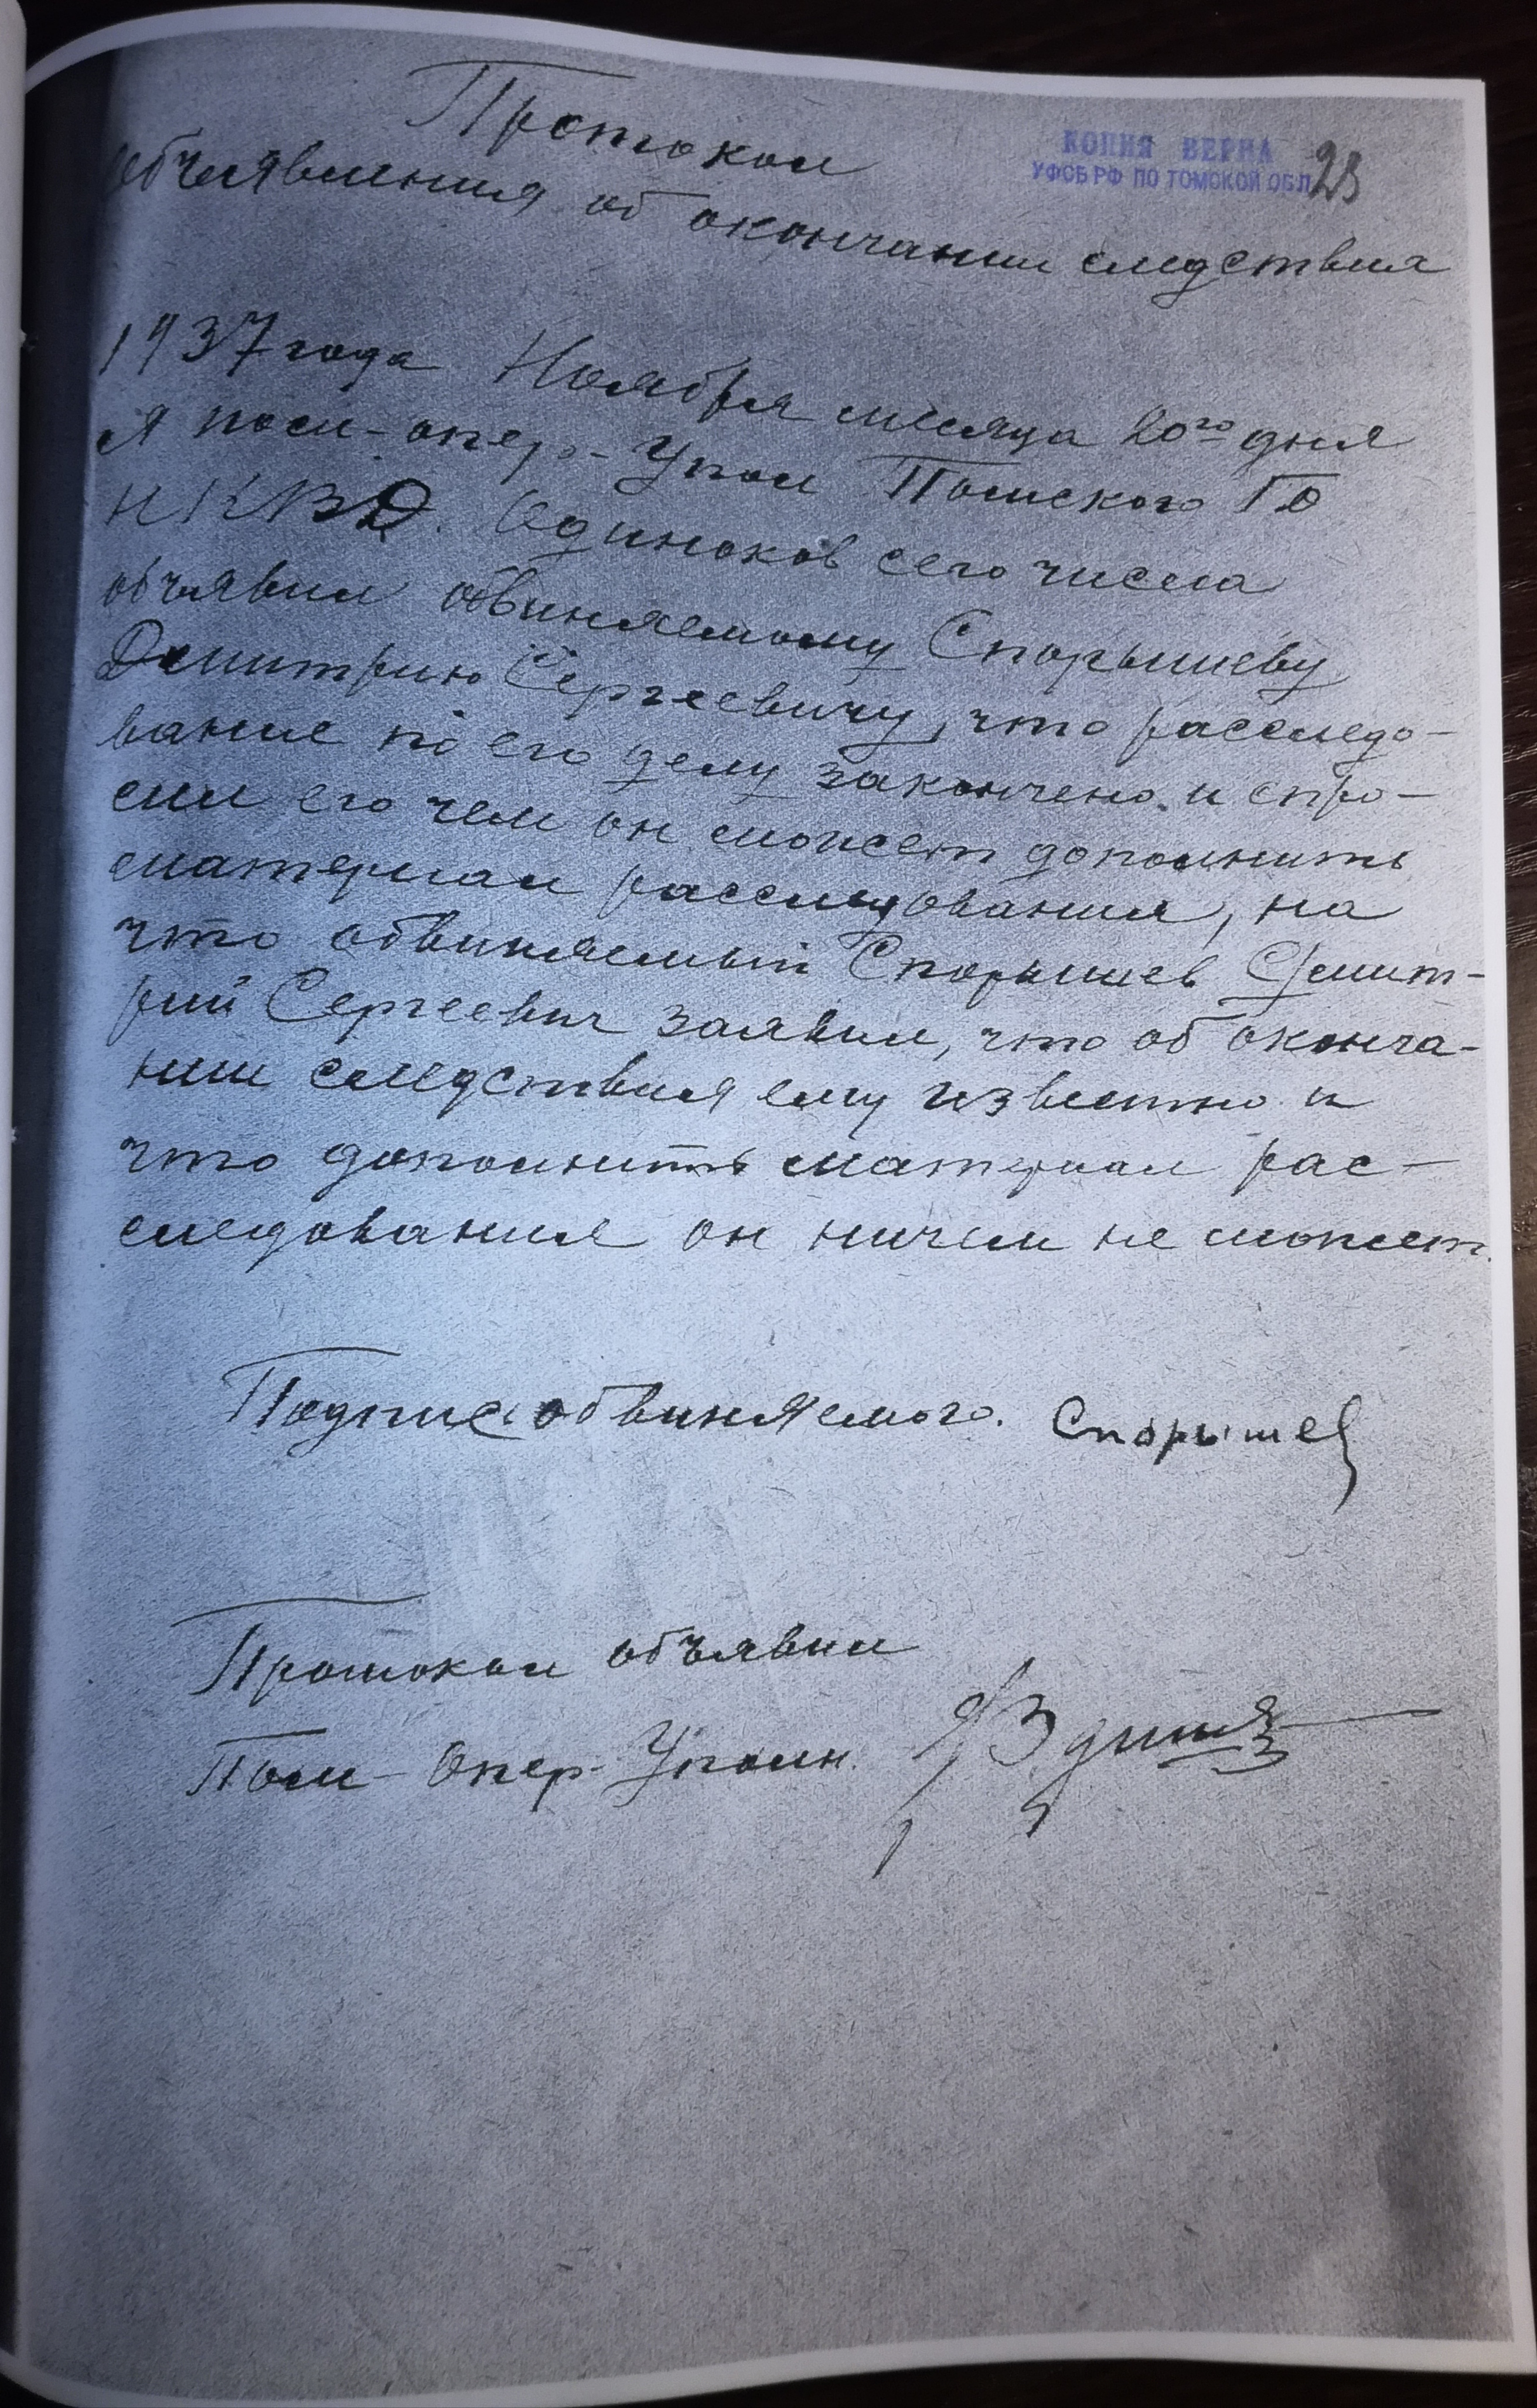 Протокол
КОПИЯ ВЕРНА
УФСБ РФ ПО ТОМСКОЙ ОБЛ
объявления об окончании следствия
1937 года Ноября месяца 20го дня
я пом-опер-Упол Томского ГО
НКВД. Одиноков сего числа
объявил обвиняемому Спорышеву
Дмитрию Сергеевичу, что расследо-
вание по его делу закончено и спро-
сил его чем он может дополнить
материал расследования, на
что обвиняемый Спорышев Дмит-
рий Сергеевич заявил, что об оконча-
нии следствия ему известно и
что дополнить материал рас-
следования он ничем не может.
Подпис обвиняемого. Спорышев
Протокол объявил
Пом-Опер-Уполн.